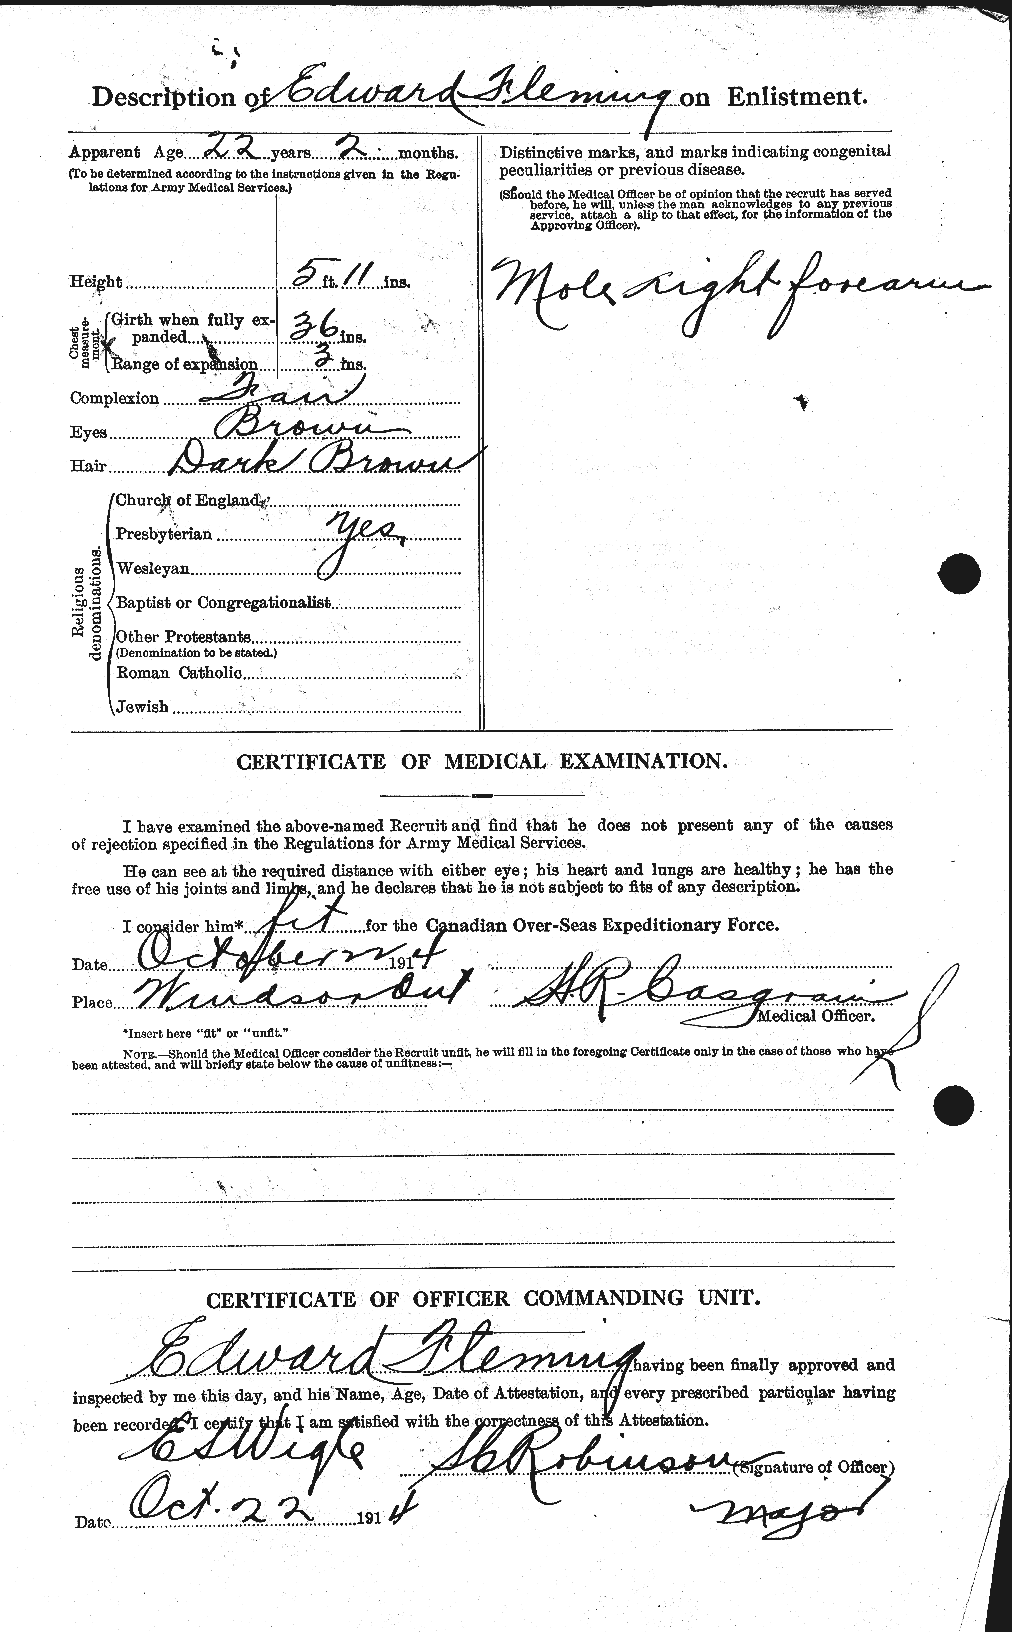 Description of Edward Fleming on Enlistment.
Apparent Age 22 years 2 months.
(To be determined according to the instructions given in the Regu-
lations for Army Medical Services.)
Height 5 ft. 11 ins.
Chest measure-ment.
Girth when fully ex-
panded 36 ins.
Range of expansion 3 ins.
Complexion Fair
Eyes Brown
Hair Dark Brown
Religious denominations.
Church of England
Presbyterian Yes
Wesleyan
Baptist or Congregationalist
Other Protestants
(Denomination to be stated.)
Roman Catholic
Jewish
Distinctive marks, and marks indicating congenital
peculiarities or previous disease.
(Should the Medical Officer be of opinion that the recruit has served
before, he will, unless the man acknowledges to any previous
service, attach a slip to that effect, for the information of the
Approving Officer).
Mole right forearm
CERTIFICATE OF MEDICAL EXAMINATION.
I have examined the above-named Recruit and find that he does not present any of the causes
of rejection specified in the Regulations for Army Medical Services.
He can see at the required distance with either eye; his heart and lungs are healthy; he has the
free use of his joints and limbs, and he declares that he is not subject to fits of any description.
I consider him* fit for the Canadian Over-Seas Expeditionary Force.
Date October 22 1914
Place Windsor Ont H.R. Casgrain
Medical Officer.
*Insert here "fit" or "unfit."
NOTE.—Should the Medical Officer consider the Recruit unfit, he will fill in the foregoing Certificate only in the case of those who have
been attested, and will briefly state below the cause of unfitness:—
CERTIFICATE OF OFFICER COMMANDING UNIT.
Edward Fleming having been finally approved and
inspected by me this day, and his Name, Age, Date of Attestation, and every prescribed particular having
been recorded, I certify that I am satisfied with the correctness of this Attestation.
ES Wigle Robinson (Signature of Officer)
Major
Date Oct. 22 1914